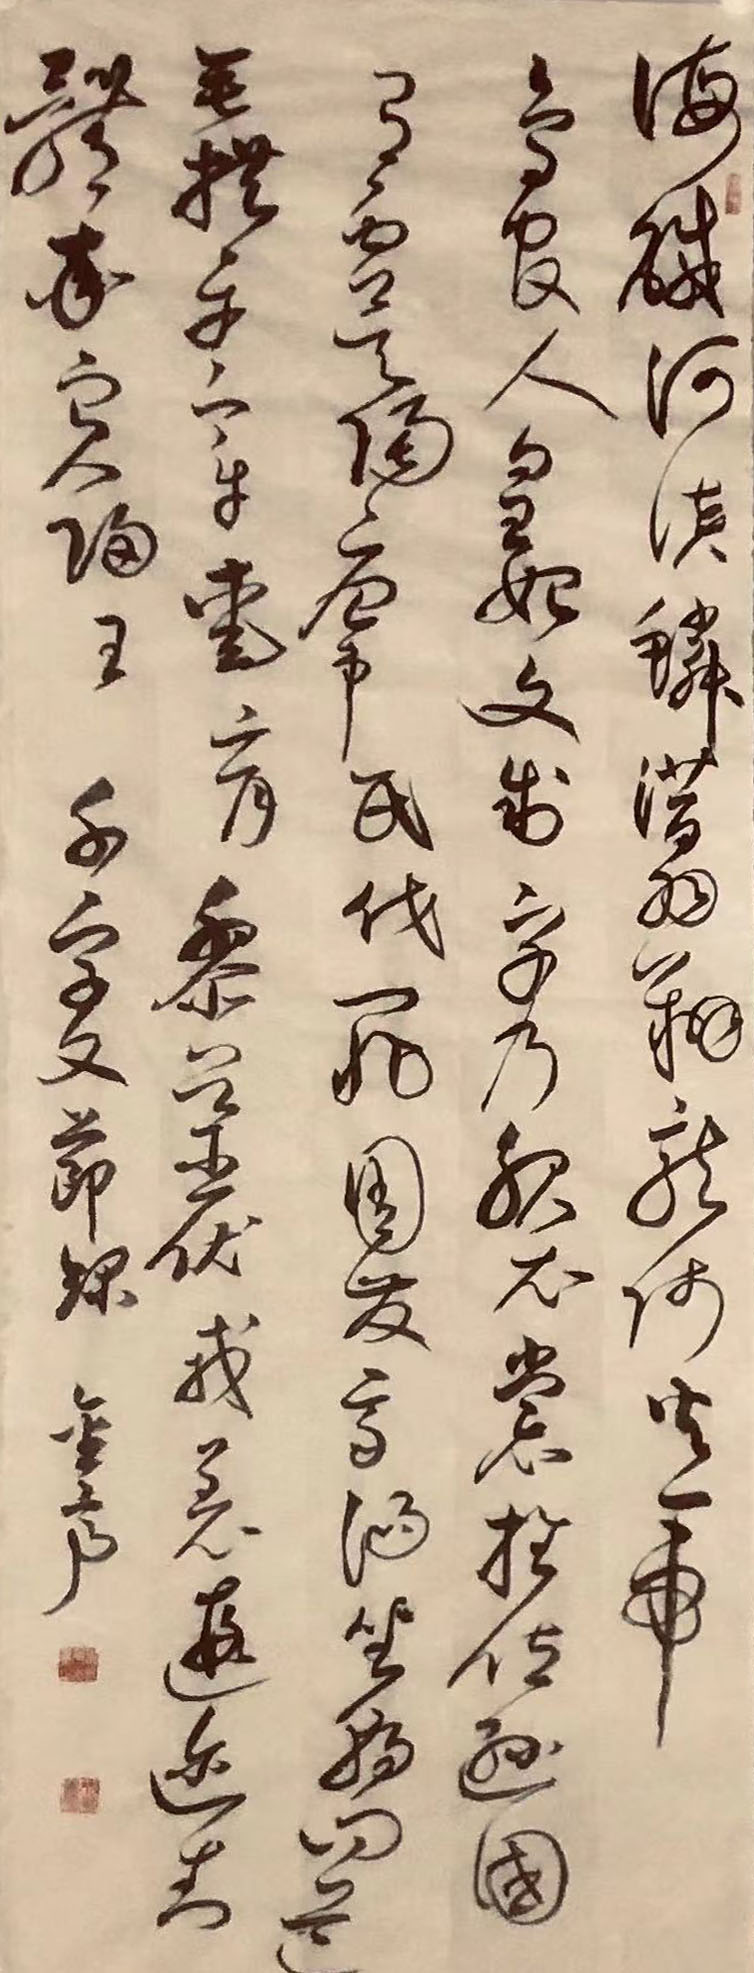 海鹹河淡鱗潛羽翔龍師火帝
鳥官人皇始制文字乃服衣裳推位遜國
有虞陶唐弔民伐罪周發商湯坐朝問道
垂拱平章愛育黎首臣伏戎羌遐邇壹
體率賓歸王 千字文節錄